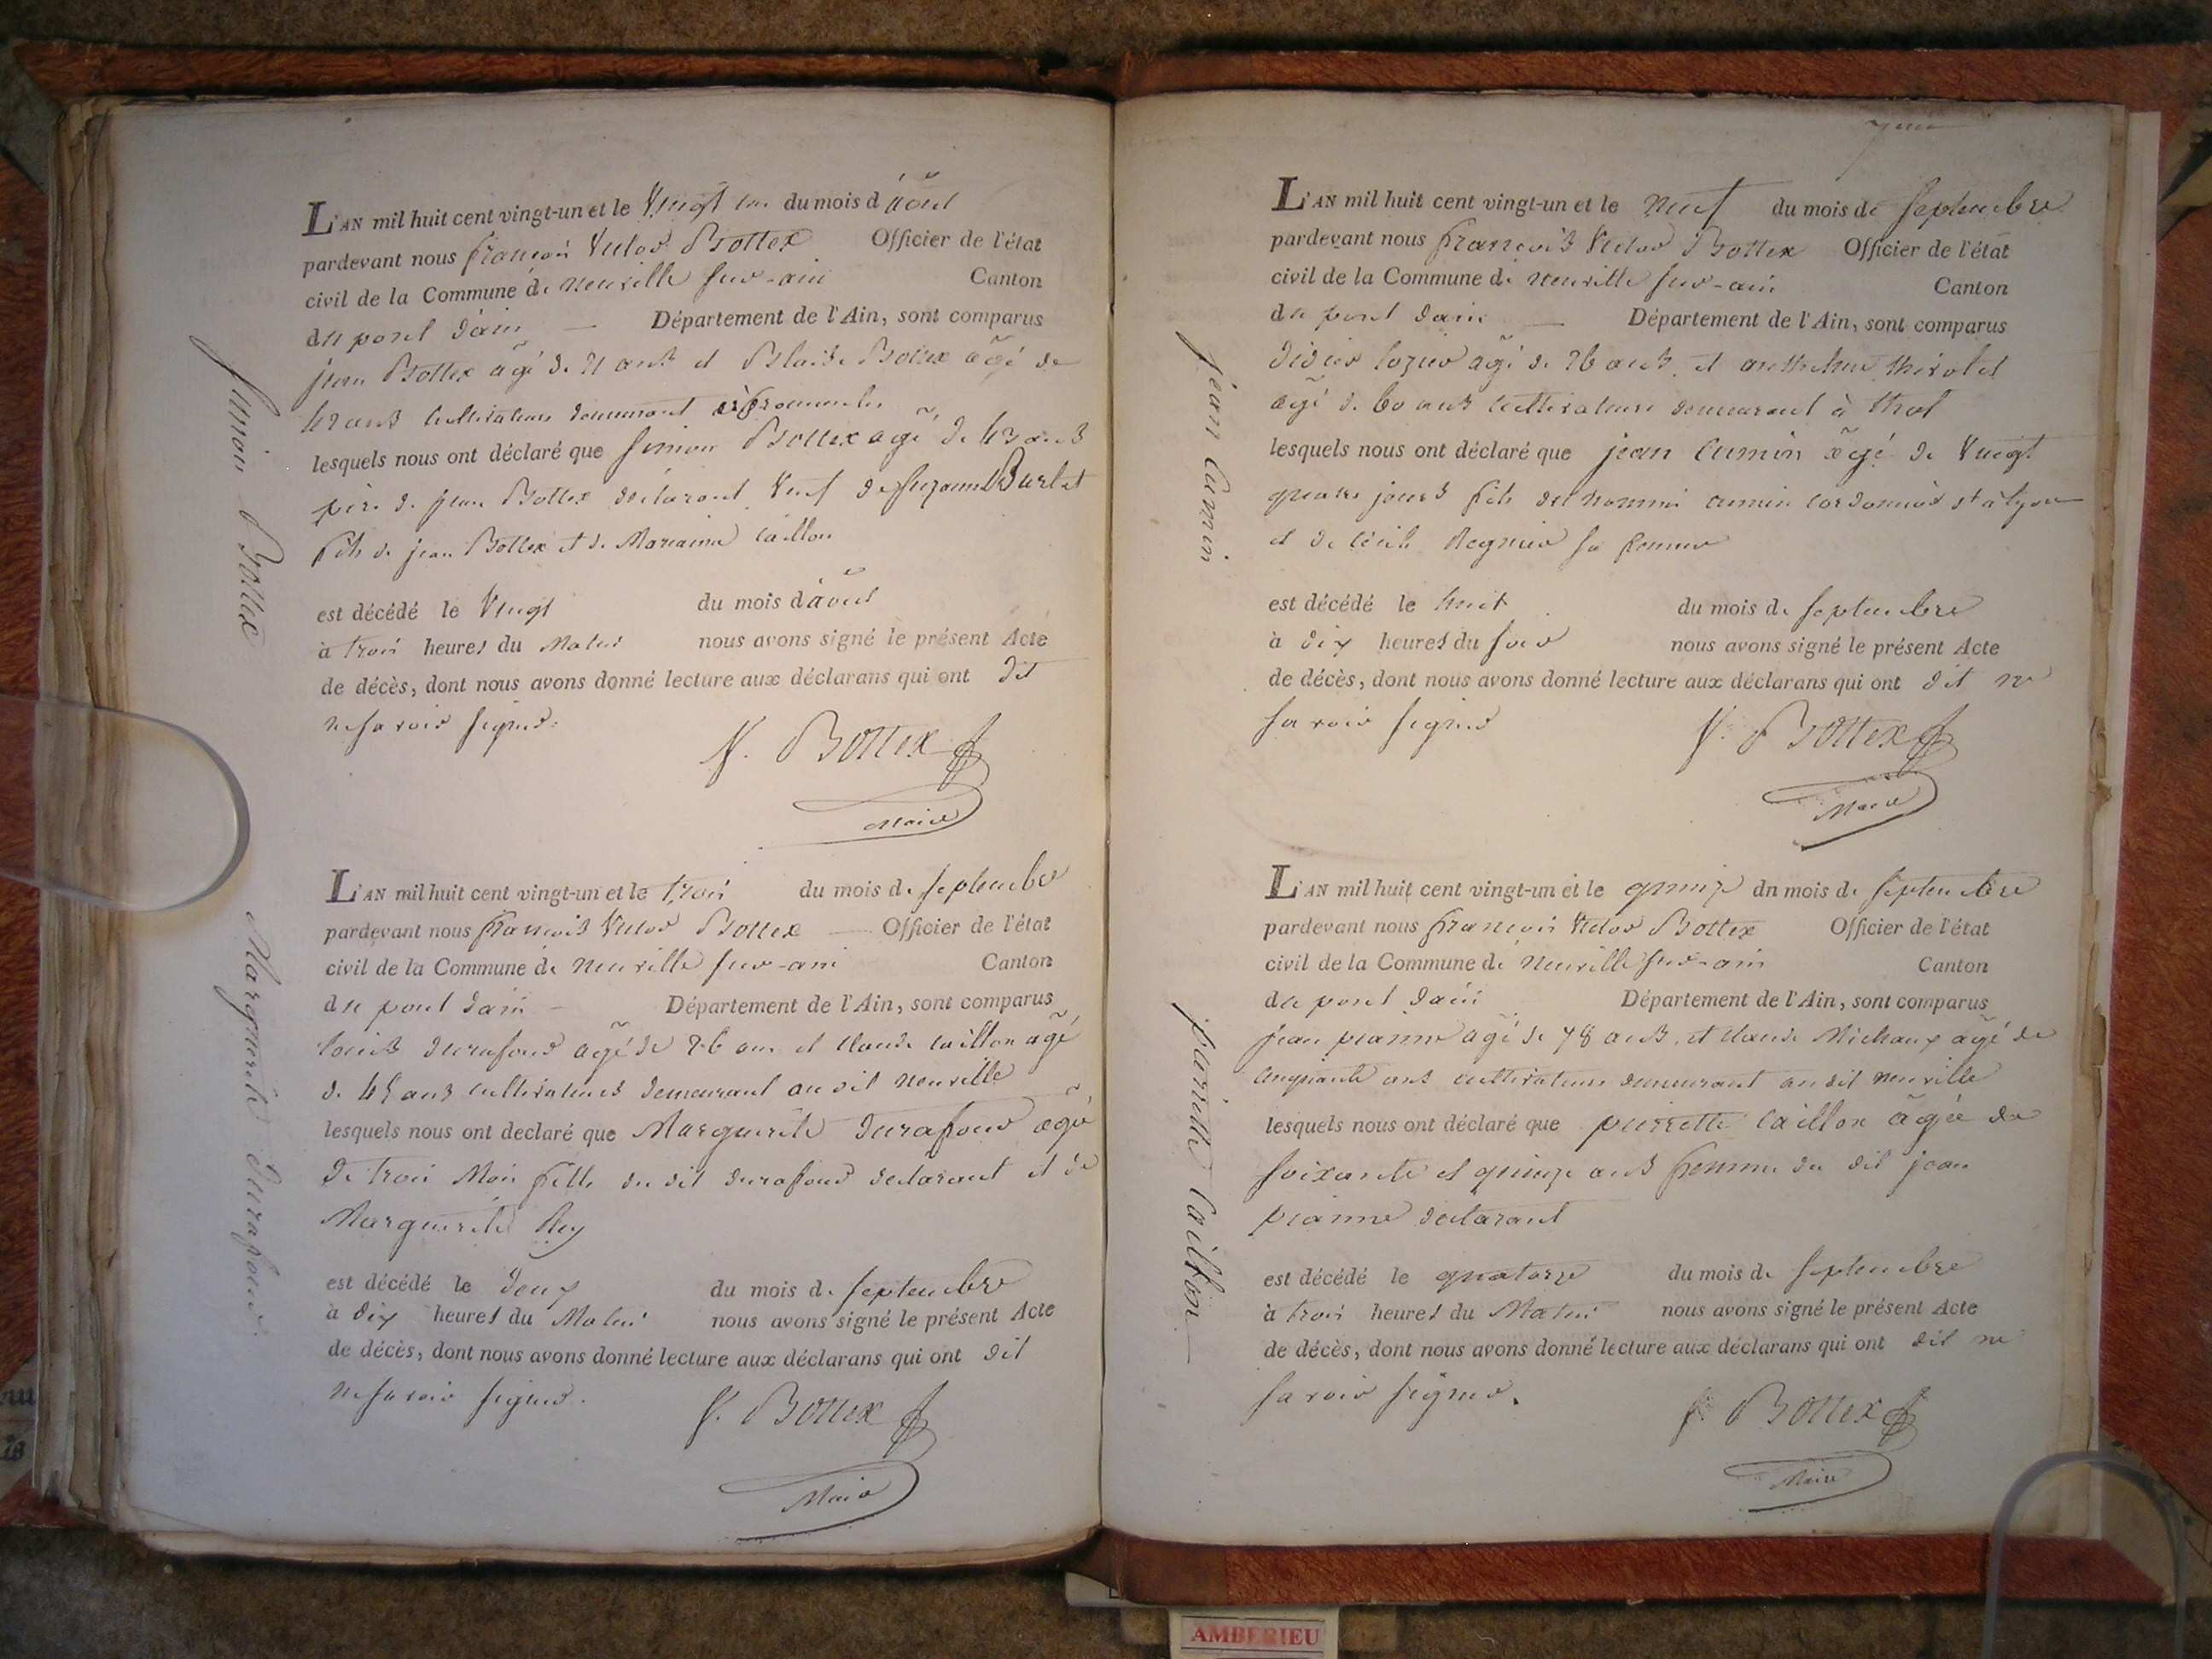 L'AN mil huit cent vingt-un et le Vingt un du mois d'août
pardevant nous françois Victor Bottex Officier de l'état
civil de la Commune de neuville sur-ain Canton
du pont d'ain — Département de l'Ain, sont comparus
jean Bottex agé de 21 ans et Blaise Bottex agé de
ans cultivateurs demeurant à fromente
lesquels nous ont déclaré que simon Bottex agé de 63 ans
père de jean Bottex déclarant Veuf de suzanne Burlet
fils de jean Bottex et de Marianne Caillon
est décédé le Vingt du mois d'août
à trois heures du Matin nous avons signé le présent Acte
de décès, dont nous avons donné lecture aux déclarans qui ont dit
ne savoir signer.
V. Bottex
Maire
simon Bottex
L'AN mil huit cent vingt-un et le trois du mois de septembre
pardevant nous françois Victor Bottex — Officier de l'état
civil de la Commune de neuville sur-ain Canton
du pont d'ain — Département de l'Ain, sont comparus
louis durafour agé de 26 ans et claude caillon agé
de 45 ans cultivateurs demeurant au dit neuville
lesquels nous ont declaré que Marguerite durafour agée
de trois Mois fille du dit durafour declarant et de
Marguerite Rey
est décédé le deux du mois de septembre
à dix heures du Matin nous avons signé le présent Acte
de décès, dont nous avons donné lecture aux déclarans qui ont dit
ne savoir signer.
V. Bottex
Maire
Marguerite durafour
L'AN mil huit cent vingt-un et le neuf du mois de septembre
pardevant nous françois Victor Bottex Officier de l'état
civil de la Commune de neuville sur-ain Canton
du pont d'ain — Département de l'Ain, sont comparus
didier lozier agé de 26 ans et anthelme thévolet
agé de 60 ans cultivateurs demeurant à thol
lesquels nous ont déclaré que jean Cumin agé de Vingt
quatre jours fils du nommé cumin cordonnier à lyon
et de Cécile Regnier sa femme
est décédé le huit du mois de septembre
à dix heures du soir nous avons signé le présent Acte
de décès, dont nous avons donné lecture aux déclarans qui ont dit ne
savoir signer
V. Bottex
Maire
jéan Cumin
L'AN mil huit cent vingt-un et le quinze dn mois de septembre
pardevant nous françois Victor Bottex Officier de l'état
civil de la Commune de neuville sur-ain Canton
du pont d'ain Département de l'Ain, sont comparus
jean pianne agé de 78 ans et claude Michaux agé de
cinquante ans cultivateurs demeurant au dit neuville
lesquels nous ont déclaré que pierrette caillon agée de
soixante et quinze ans femme du dit jean
pianne declarant
est décédé le quatorze du mois de septembre
à trois heures du Matin nous avons signé le présent Acte
de décès, dont nous avons donné lecture aux déclarans qui ont dit ne
savoir signer.
V. Bottex
Maire
pierrette Caillon
AMBERIEU